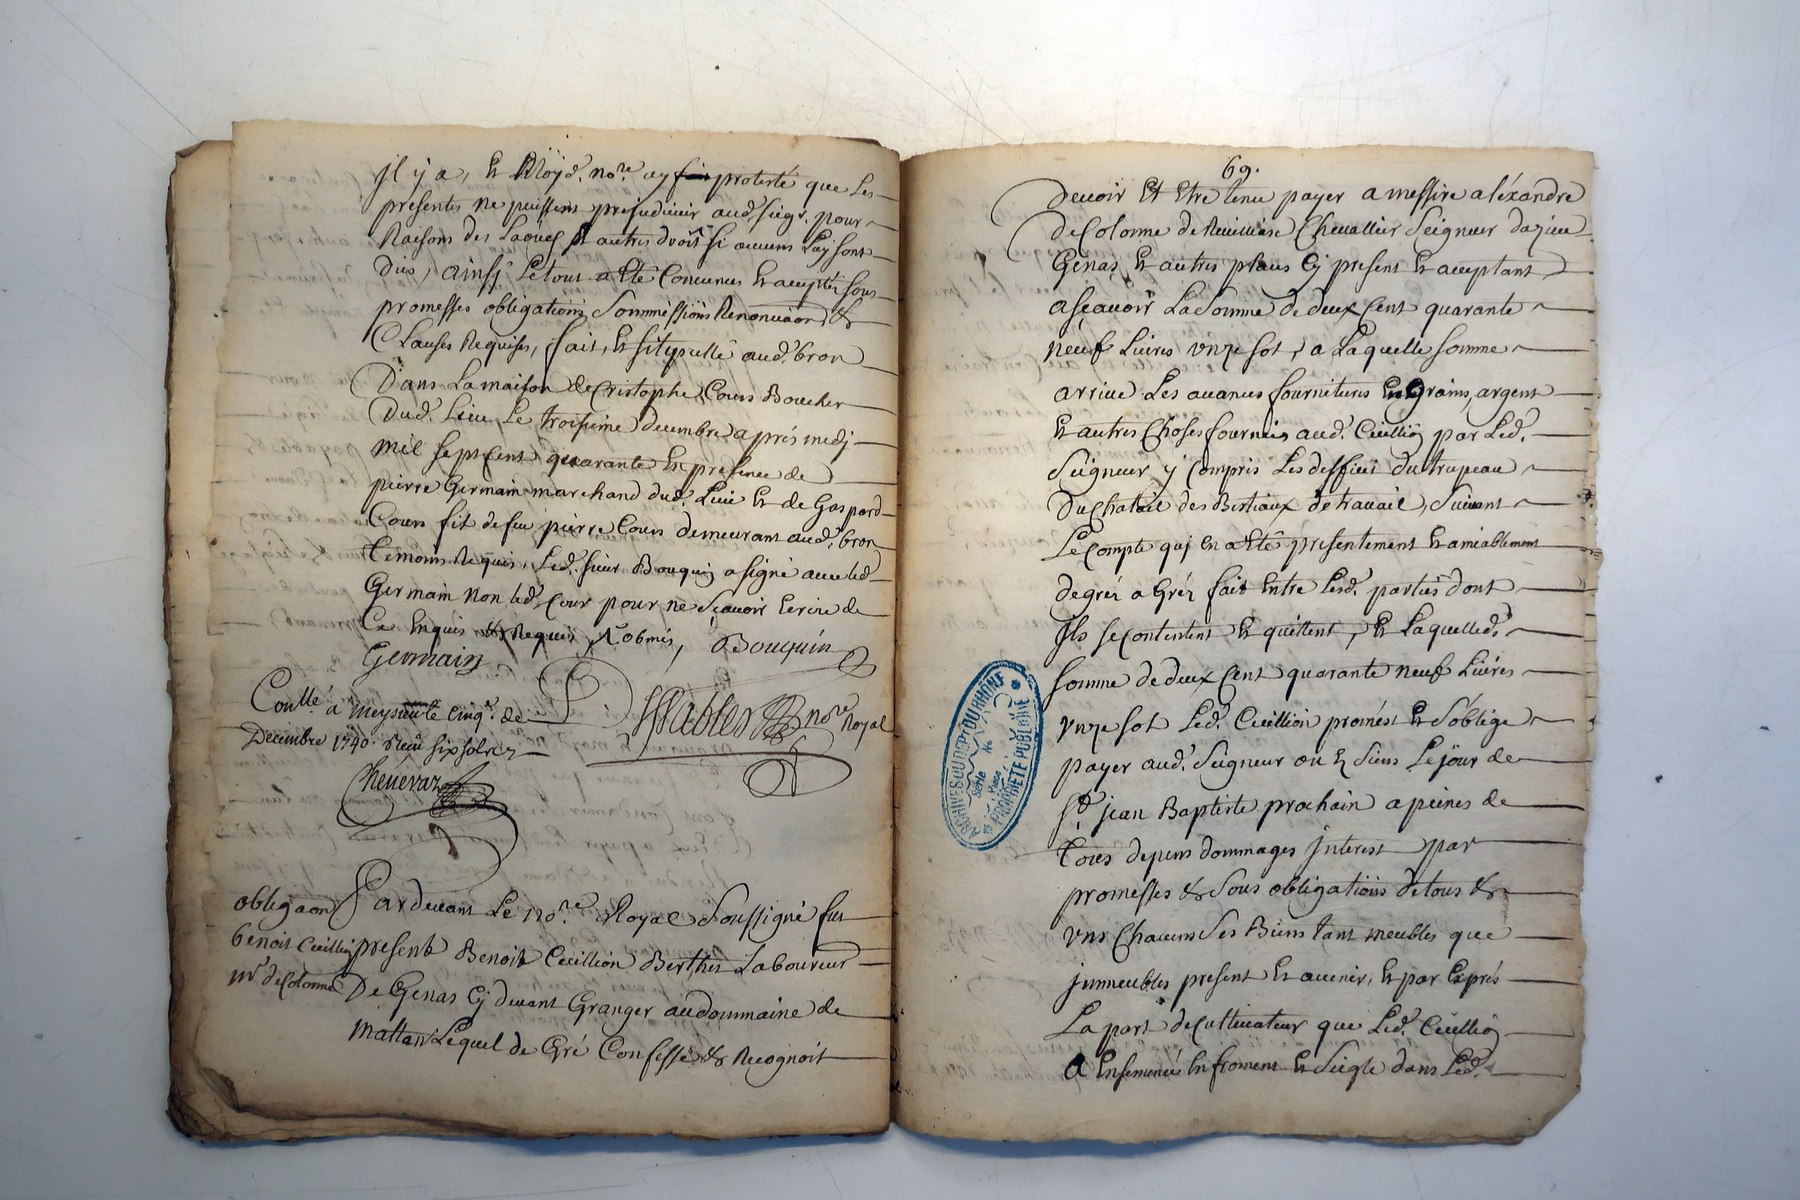 il y a, et moyd. no.re ay protesté que les
presentes ne puissent prejudicier aud. siegr. pour
Raisons des Laouds et autres droits si aucuns Luy sont
dus, ainsy le tout a esté Convenus et accepté sous
promesses obligations Soummissions Renonciaons &
Clauses Requises, fait, et stypullé aud. bron
Dans La maison de Cristophe Cours Boucher
dud. Lieu Le troisieme decembre apres medj
mil sept cent quarante En presence de
pierre Germain marchand dud. Lieu et de Gaspard
Cours fil de feu pierre Cours demeurant aud. bron
témoins Requis, Led. sieur Bouquin a signé avec led.
Germain non led. Cour pour ne sçavoir Ecrire de
Ce Enquis et Requis, Bouquin
Germain
Conllé a Meysieu le cinq.e de
Decembre 1740. Receu six sols
no.re Royal
Chenevaz
Pardevant Le no.re Royal Soussigné fut
obligaon
present Benoit Cuillion Berthet Laboureur
benoit Cuillion
De Genas Cy devant Granger au doummaine de
mr. de Colonne
mattan Lequel de Gré Confesse & Recognoit
69.
devoir Et Etre tenu payer a messire aléxandre
de Colonne de Chevallier Seigneur dazieu
Genas, et autres places Cy present et acceptant
a sçavoir La Somme de deux Cent quarante
neuf Livres unze sol, a Laquelle somme
arrive Les avances fournitures En Grains, argent
et autres Choses fournies aud. Cuillion par Led.
Seigneur y Compris Les deffieit du trupeau
Du Chatail des Bestiaux de travail, Suivant
Le Compte quj En a Eté presentement et amiablement
de gréz a Gréz fait Entre Lesd. parties dont
Ils se Contentent et quittent, et Laquelled.
somme de deux Cent quarante neuf Livres
unze sol Led. Cuillion promest et s'oblige
payer aud. Seigneur ou es Siens Le jour de
st. jean Baptiste prochain a peines de
tous depens dommages Interest par
promesses & Sous obligations de tous &
uns Chacuns Ses Biens tant meubles que
jmmeubles present et avenir, et par Exprés
La part de Cultivateur que Led. Cuillion
a Ensemencée En froment et Seigle dans Led.
ARCHIVES DU DEPT DU RHONE
Série
No
PROPRIÉTÉ PUBLIQUE